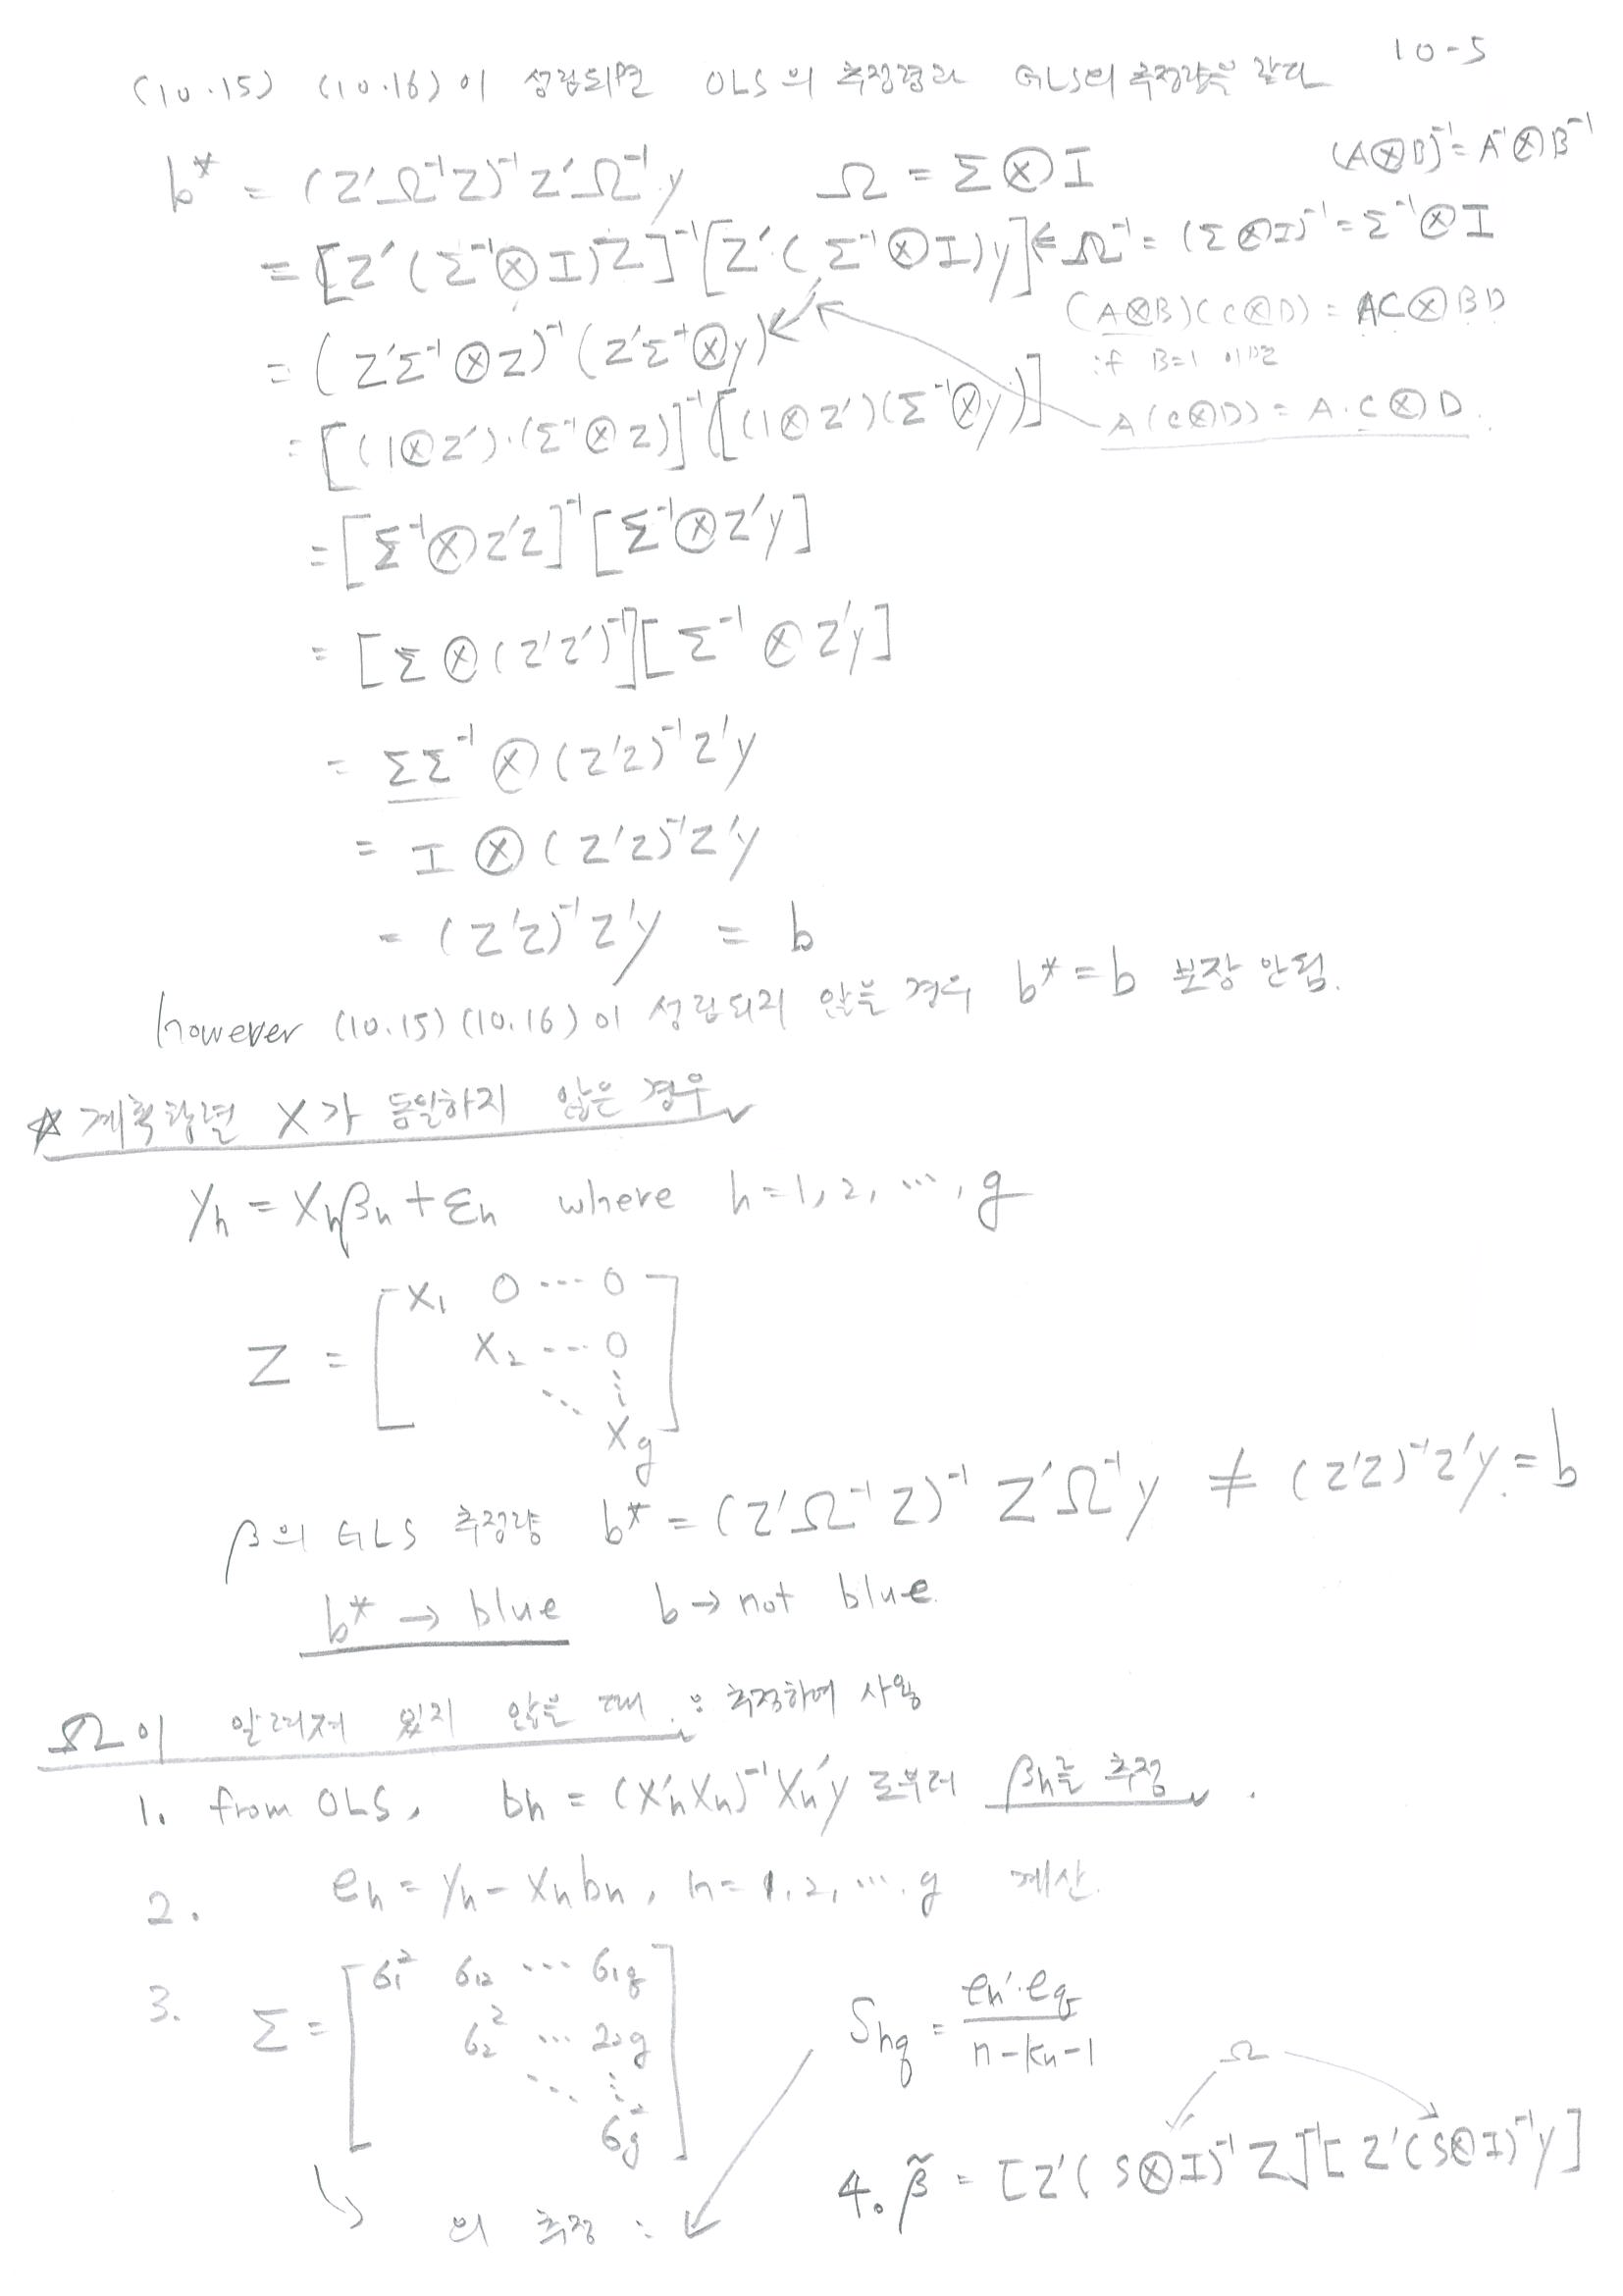 10-5
(10.15) (10.16)이 성립되면 OLS의 추정량과 GLS의 추정량은 같다
b* = (Z'Ω⁻¹Z)⁻¹Z'Ω⁻¹y Ω = Σ⊗I (A⊗B)⁻¹ = A⁻¹⊗B⁻¹
= [Z'(Σ⁻¹⊗I)Z]⁻¹[Z'(Σ⁻¹⊗I)y] ← Ω⁻¹ = (Σ⊗I)⁻¹ = Σ⁻¹⊗I
(A⊗B)(C⊗D) = AC⊗BD
= (Z'Σ⁻¹⊗Z)⁻¹(Z'Σ⁻¹⊗y) if B=1 이면
= [(1⊗Z')·(Σ⁻¹⊗Z)]⁻¹[(1⊗Z')(Σ⁻¹⊗y)] A(C⊗D) = A·C⊗D.
= [Σ⁻¹⊗Z'Z]⁻¹[Σ⁻¹⊗Z'y]
= [Σ⊗(Z'Z')⁻¹][Σ⁻¹⊗Z'y]
= ΣΣ⁻¹⊗(Z'Z)⁻¹Z'y
= I⊗(Z'Z)⁻¹Z'y
= (Z'Z)⁻¹Z'y = b
however (10.15)(10.16)이 성립되지 않을 경우 b* = b 보장 안됨.
* 계획행렬 X가 동일하지 않은 경우
yh = Xhβh + εh where h=1, 2, ⋯, g
Z = [X₁ 0 ⋯ 0
X₂ ⋯ 0
⋱ ⋮
Xg]
β의 GLS 추정량 b* = (Z'Ω⁻¹Z)⁻¹Z'Ω⁻¹y ≠ (Z'Z)⁻¹Z'y = b
b* → blue b → not blue.
Ω이 알려져 있지 않을 때 : 추정하여 사용
1. from OLS, bh = (X'hXh)⁻¹Xh'y 로부터 βh를 추정.
2. eh = yh - Xhbh, h = 1, 2, ⋯, g 계산.
3. Σ = [σ₁² σ₁₂ ⋯ σ₁g
σ₂² ⋯ 22g
⋱ ⋮
σg²] Shq = eh'·eq / n-kh-1
Ω
4. β̃ = [Z'(S⊗I)⁻¹Z]⁻¹[Z'(S⊗I)⁻¹y]
의 추정 :